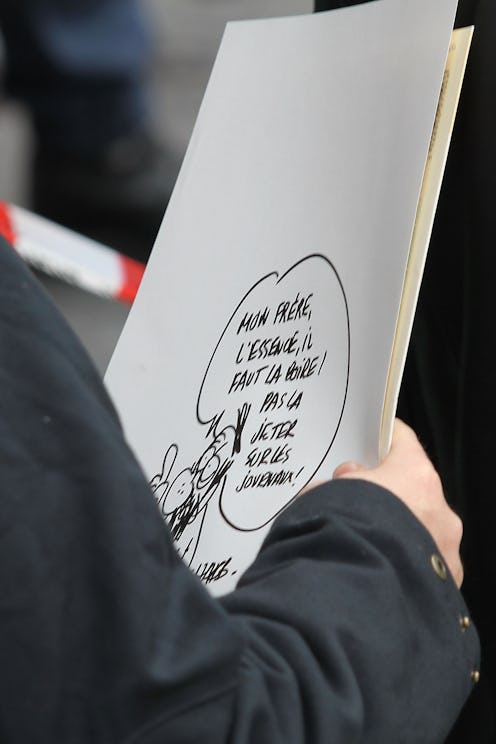 MON FRÈRE,
L'ESSENCE, iL
FAUT LA BOIRE!
PAS LA
JETER
SUR LES
JOURNAUX!